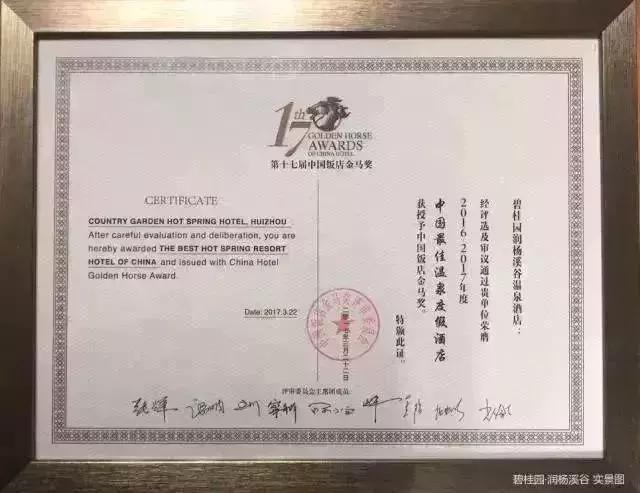 17th
GOLDEN HORSE
AWARDS
OF CHINA HOTEL
第十七届中国饭店金马奖
CERTIFICATE
COUNTRY GARDEN HOT SPRING HOTEL, HUIZHOU
After careful evaluation and deliberation, you are
hereby awarded THE BEST HOT SPRING RESORT
HOTEL OF CHINA and issued with China Hotel
Golden Horse Award.
Date: 2017.3.22
碧桂园润杨溪谷温泉酒店：
经评选及审议通过贵单位荣膺
2016-2017年度
中国最佳温泉度假酒店
获授予中国饭店金马奖。
特颁此证。
二〇一七年三月二十二日
评审委员会主席团成员：
碧桂园·润杨溪谷 实景图